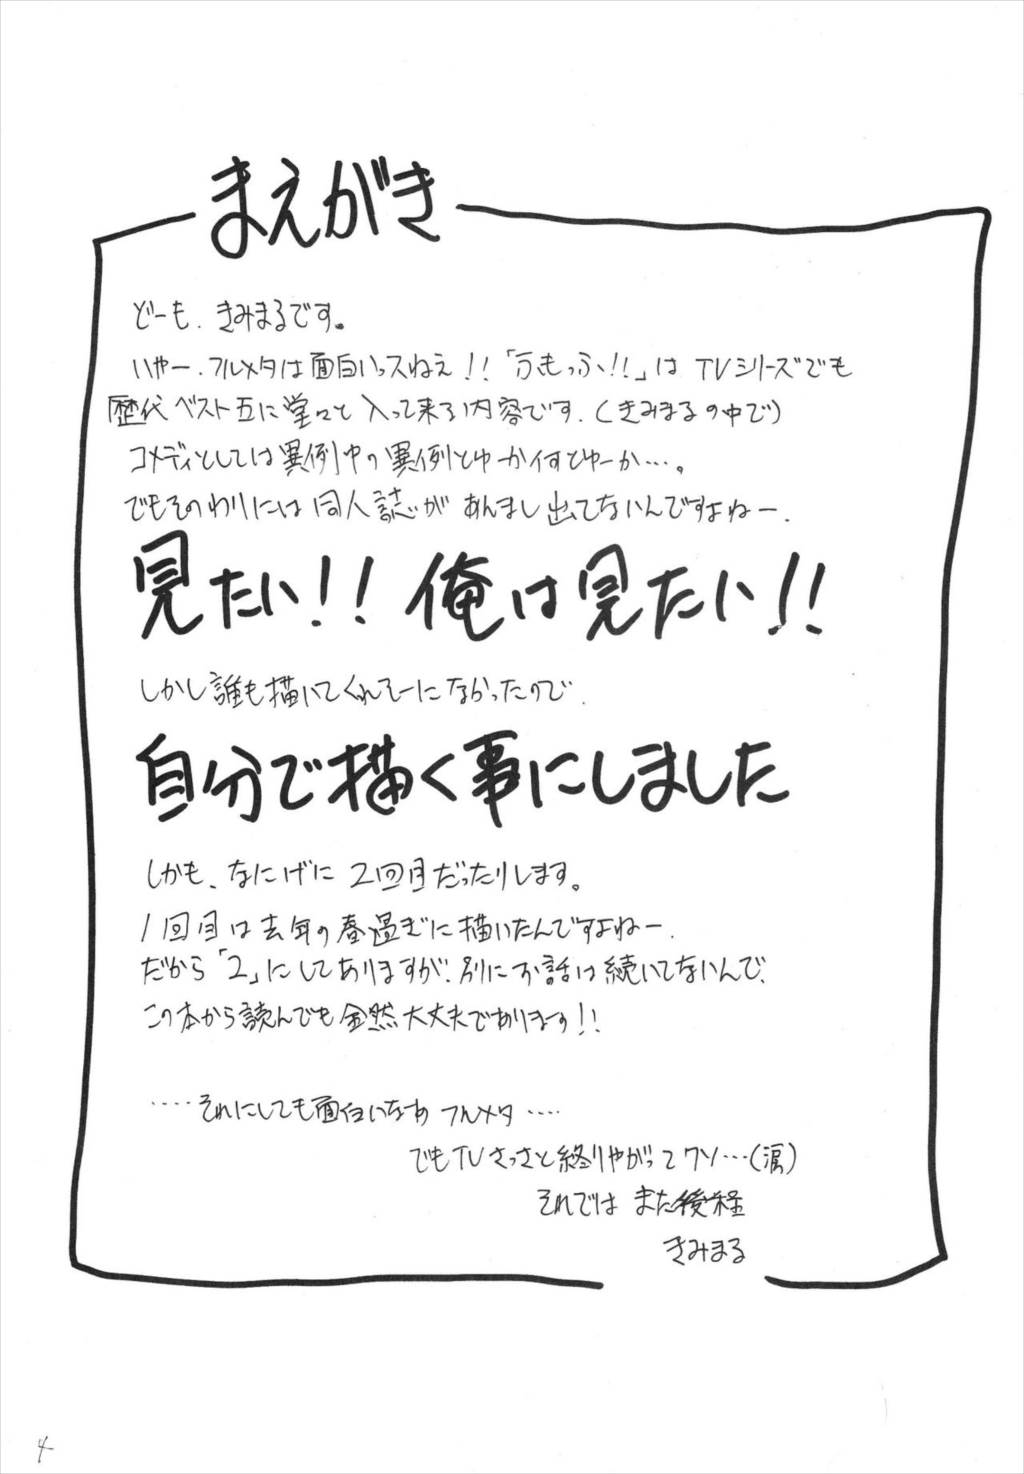 まえがき
どーも、きみまるです。
いやー、フルメタは面白いっスねえ!!「ふもっふ!!」は TVシリーズでも
歴代ベスト五に堂々と入って来る内容です。(きみまるの中で)
コメディとしては異例中の異例とゆーか何とゆーか…。
でもそのわりには同人誌があんまし出てないんですよねー。
見たい!! 俺は見たい!!
しかし誰も描いてくれそーになかったので、
自分で描く事にしました
しかも、なにげに 2回目だったりします。
1回目は去年の春過ぎに描いたんですよねー。
だから「2」にしてありますが、別にお話は続いてないんで、
この本から読んでも全然大丈夫であります!!
……それにしても面白いなぁ フルメタ……
でもTVさっさと終りやがってクソ…(涙)
それでは また後程
きみまる
4